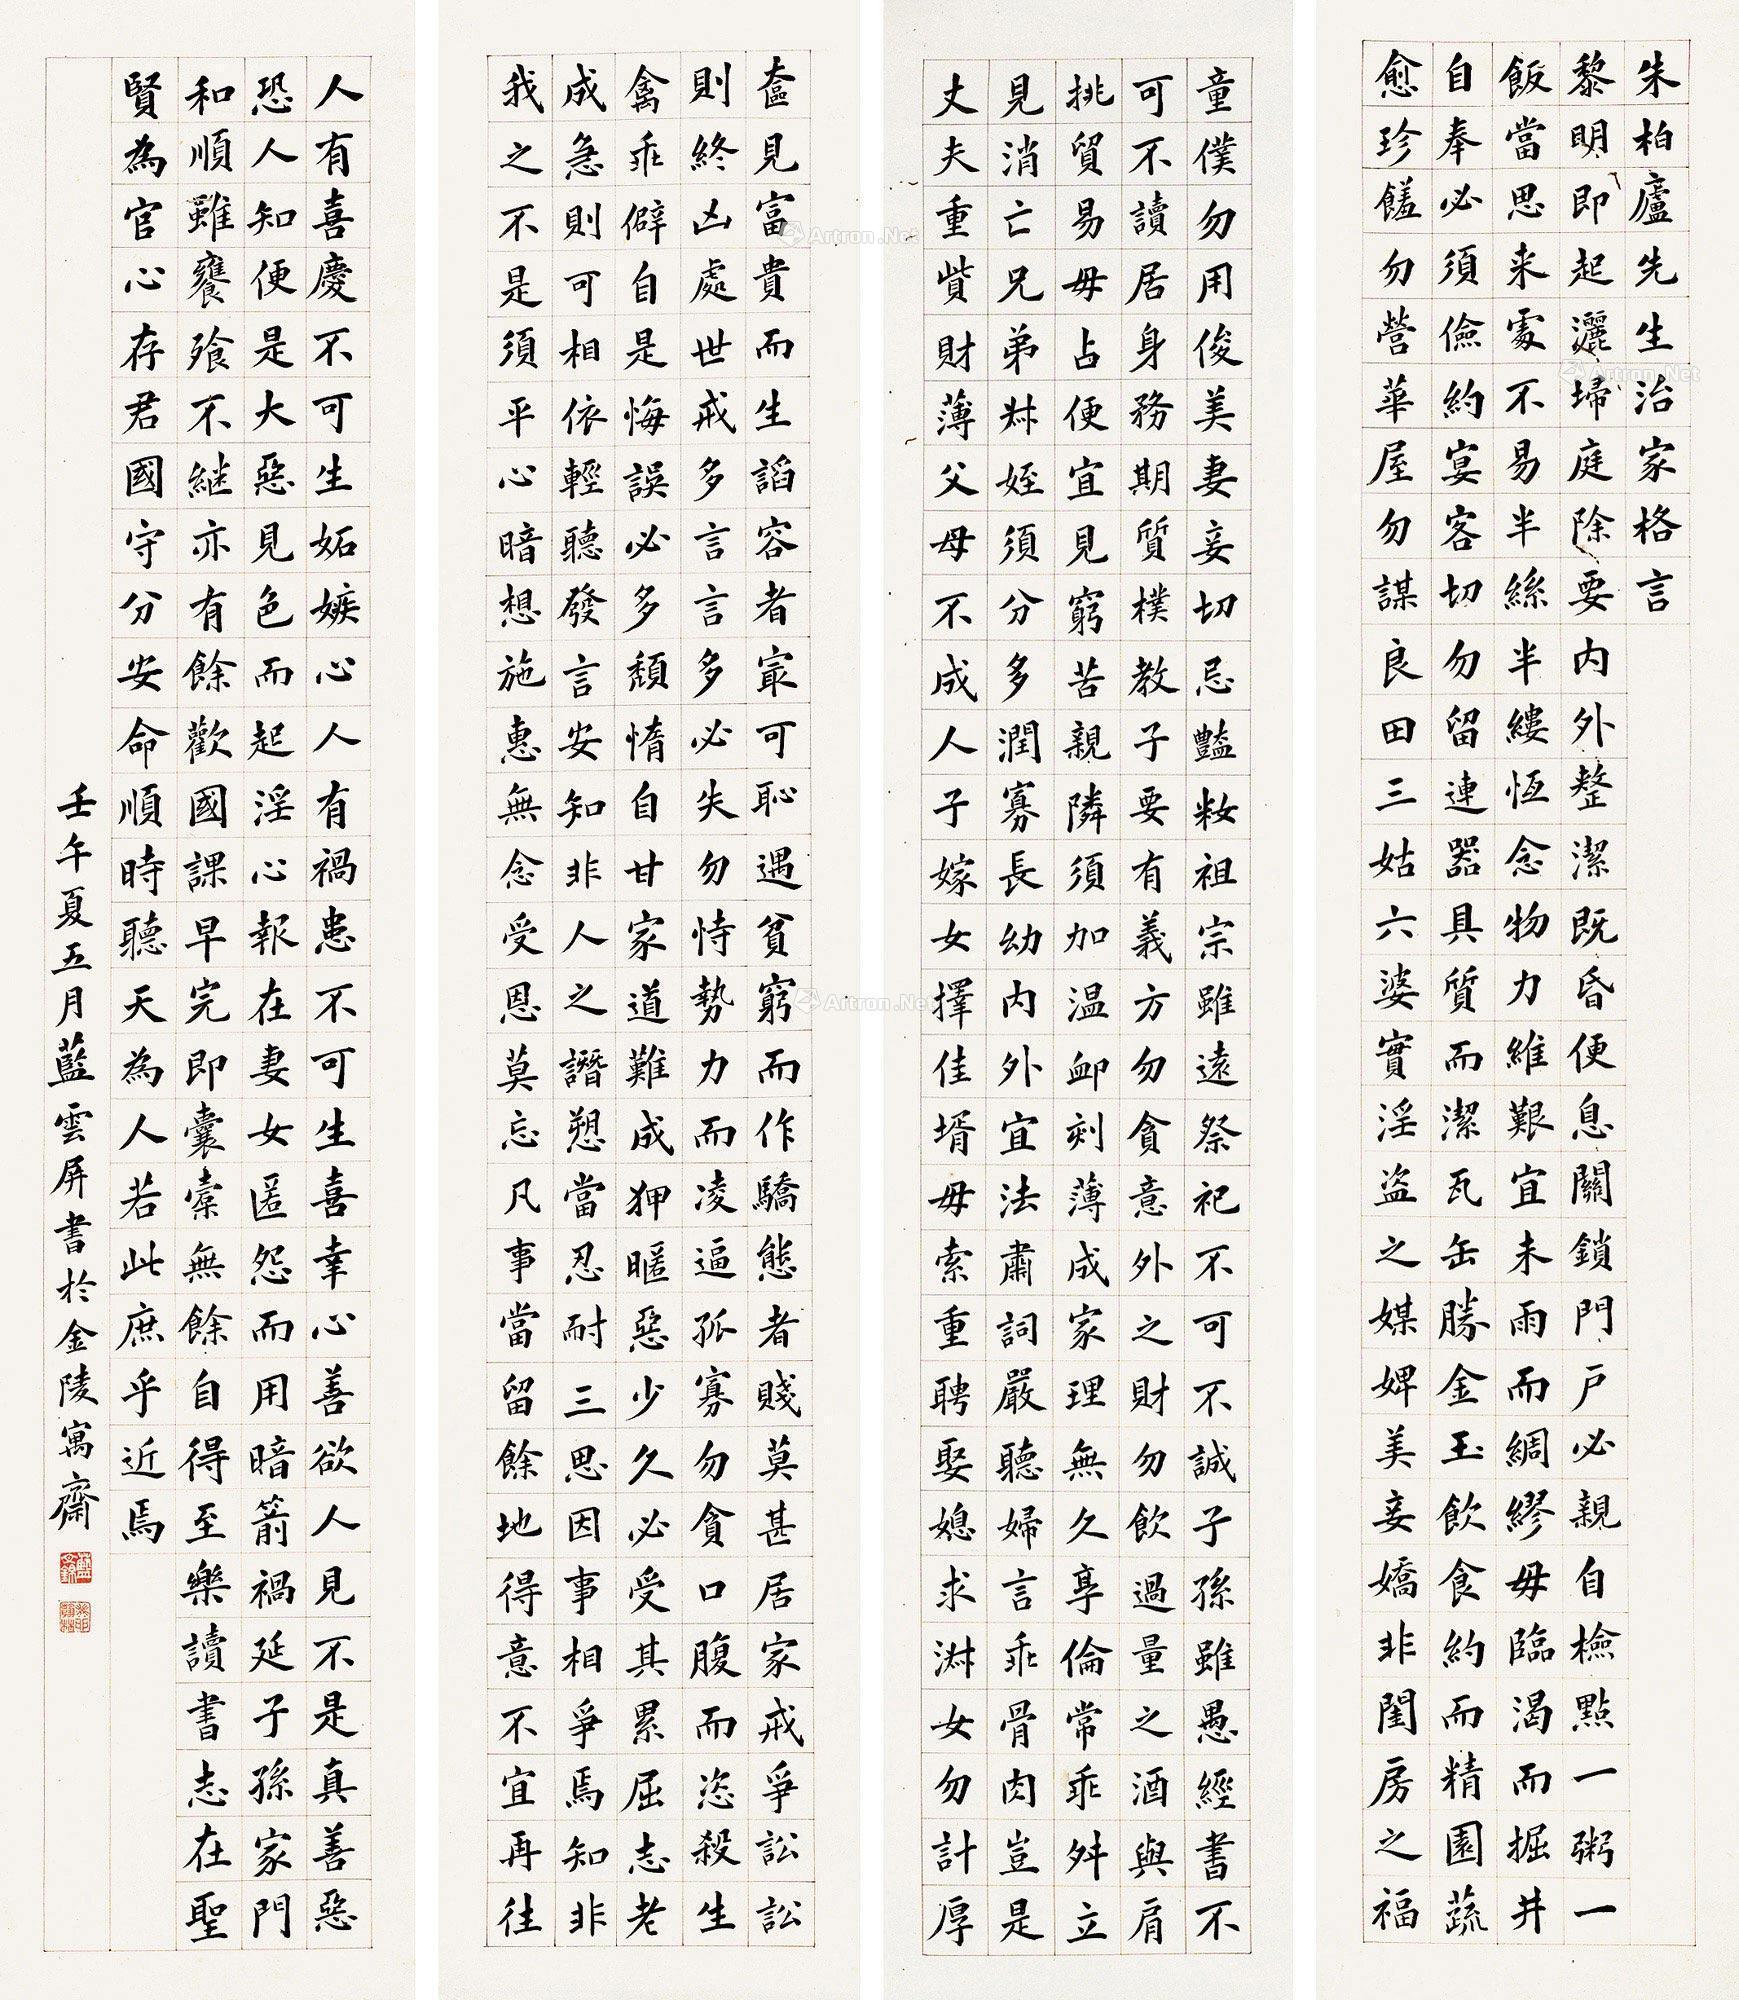 朱柏廬先生治家格言
黎明即起灑埽庭除要内外整潔既昏便息關鎖門户必親自檢點一粥一
飯當思来處不易半絲半縷恆念物力維艱宜未雨而綢繆毋臨渴而掘井
自奉必須儉約宴客切勿留連器具質而潔瓦缶勝金玉飲食約而精園蔬
愈珍饈勿營華屋勿謀良田三姑六婆實淫盗之媒婢美妾嬌非閨房之福
童僕勿用俊美妻妾切忌豔粧祖宗雖遠祭祀不可不誠子孫雖愚經書不
可不讀居身務期質樸教子要有義方勿貪意外之財勿飲過量之酒與肩
挑貿易毋占便宜見窮苦親隣須加温卹刻薄成家理無久享倫常乖舛立
見消亡兄弟叔姪須分多潤寡長幼内外宜法肅詞嚴聽婦言乖骨肉豈是
丈夫重貲財薄父母不成人子嫁女擇佳壻毋索重聘娶媳求淑女勿計厚
奩見富貴而生諂容者冣可恥遇貧窮而作驕態者賤莫甚居家戒爭訟訟
則終凶處世戒多言言多必失勿恃勢力而凌逼孤寡勿貪口腹而恣殺生
禽乖僻自是悔誤必多頽惰自甘家道難成狎暱惡少久必受其累屈志老
成急則可相依輕聽發言安知非人之譖愬當忍耐三思因事相爭焉知非
我之不是須平心暗想施惠無念受恩莫忘凡事當留餘地得意不宜再往
人有喜慶不可生妬嫉心人有禍患不可生喜幸心善欲人見不是真善惡
恐人知便是大惡見色而起淫心報在妻女匿怨而用暗箭禍延子孫家門
和順雖饔飱不継亦有餘歡國課早完即囊橐無餘自得至樂讀書志在聖
賢為官心存君國守分安命順時聽天為人若此庶乎近焉
壬午夏五月藍雲屏書於金陵寓齋
Artron.Net
Artron.Net
Artron.Net